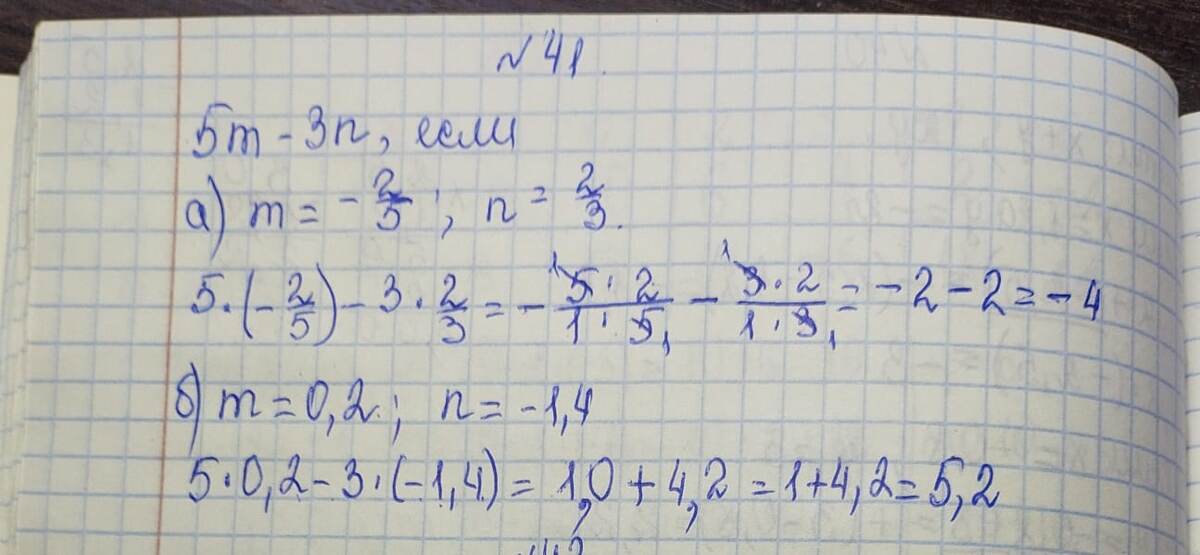 № 41.
5m - 3n, если
а) m = - 2/5 ; n = 2/3.
5·(-2/5) - 3·2/3 = - 5·2/1·5 - 3·2/1·3 = -2-2=-4
б) m = 0,2; n = -1,4
5·0,2-3·(-1,4) = 1,0+4,2 = 1+4,2=5,2